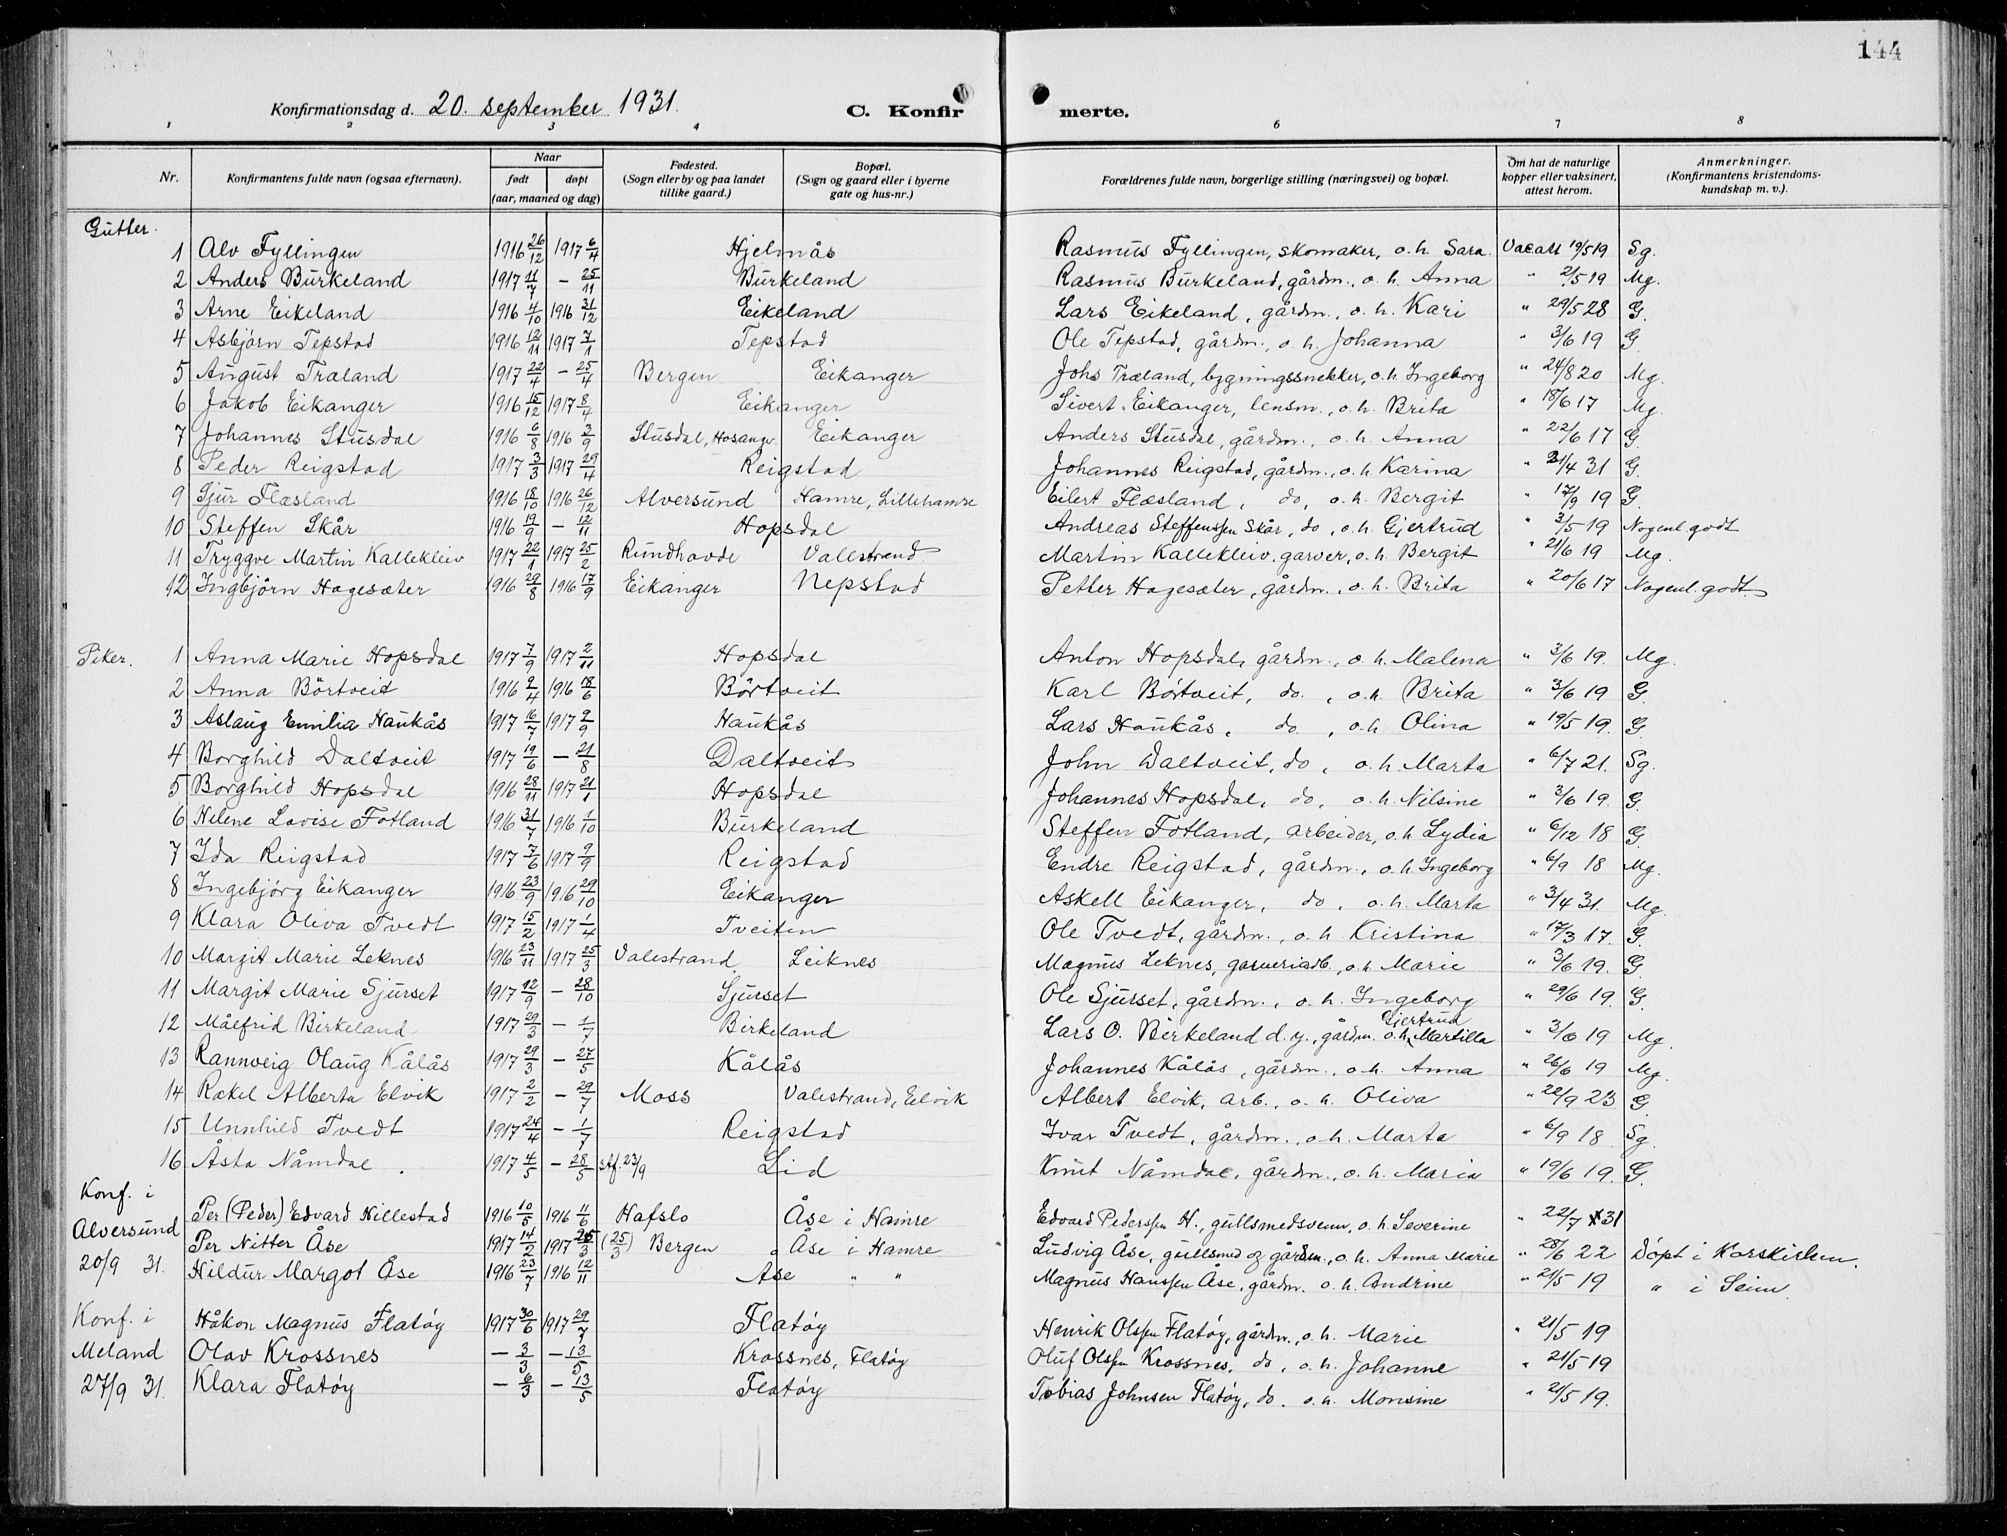 144
Konfirmationsdag d. 20. september 1931. C. Konfirmerte.
1 2 3 4 6 7 8
Nr. Konfirmantens fulde navn (ogsaa efternavn). Naar født døpt (aar, maaned og dag) Fødested. (Sogn eller by og paa landet tillike gaard.) Bopæl. (Sogn og gaard eller i byerne gate og hus-nr.) Forældrenes fulde navn, borgerlige stilling (næringsvei) og bopæl. Om hat de naturlige kopper eller vaksinert, attest herom. Anmerkninger. (Konfirmantens kristendomskundskap m. v.).
Gutter.
1 Alv Fyllingen 1916 26/12 1917 6/4 Hjelmås Rasmus Fyllingen, skomaker, o. h. Sara. Vac att 19/5 19 Sg.
2 Anders Burkeland 1917 11/7 – 25/11 Burkeland Rasmus Burkeland, gårdm., o. h. Anna " 2/5 19 Mg.
3 Arne Eikeland 1916 4/10 1916 31/12 Eikeland Lars Eikeland, gårdm., o. h. Kari " 29/5 28 G.
4 Asbjørn Tepstad 1916 12/11 1917 7/1 Tepstad Ole Tepstad, gårdm., o. h. Johanna " 3/6 19 G.
5 August Træland 1917 22/4 – 25/4 Bergen Eikanger Johs Træland, bygningssnekker, o. h. Ingeborg " 24/8 20 Mg.
6 Jakob Eikanger 1916 15/12 1917 8/4 Eikanger Sivert Eikanger, lensm., o. h. Brita " 18/6 17 Mg.
7 Johannes Stusdal 1916 6/8 1916 3/9 Stusdal, Hosanger Eikanger Anders Stusdal, gårdm., o. h. Anna " 22/6 17 G.
8 Peder Reigstad 1917 3/3 1917 29/4 Reigstad Johannes Reigstad, gårdm., o. h. Karina " 21/4 31 G.
9 Gjur Flæsland 1916 18/10 1916 26/12 Alversund Hamre, Lillehamre Eilert Flæsland, do, o. h. Bergit " 17/9 19 G.
10 Steffen Skår 1916 19/9 – 12/11 Hopsdal Andreas Steffenssen Skår, do, o. h. Gjertrud " 3/5 19 Nogenl godt
11 Tryggve Martin Kallekleiv 1917 22/1 1917 25/2 Rundhovde Valestrand Martin Kallekleiv, garver, o. h. Bergit " 21/6 19 Mg.
12 Ingbjørn Hagesæter 1916 29/8 1916 17/9 Eikanger Nepstad Petter Hagesæter, gårdm., o. h. Brita " 20/6 17 Nogenl. godt
Piker.
1 Anna Marie Hopsdal 1917 7/9 1917 2/11 Hopsdal Anton Hopsdal, gårdm., o. h. Malena " 3/6 19. Mg.
2 Anna Börtveit 1916 9/4 1916 18/6 Börtveit Karl Börtveit, do., o. h. Brita " 3/6 19 G.
3 Aslaug Emilia Haukås 1917 16/7 1917 2/9 Haukås Lars Haukås, do, o. h. Olina " 19/5 19. G.
4 Borghild Daltveit 1917 19/6 – 21/8 Daltveit John Daltveit, do, o. h. Marta " 6/7 21. Sg.
5 Borghild Hopsdal 1916 28/11 1917 21/1 Hopsdal Johannes Hopsdal, do, o. h. Nilsine " 3/6 19. G.
6 Helene Lovise Fotland 1916 31/7 1916 1/10 Burkeland Steffen Fotland, arbeider, o. h Lydia " 6/12 18 G.
7 Ida Reigstad 1917 7/6 1917 9/9 Reigstad Endre Reigstad, gårdm., o. h. Ingeborg " 6/9 18 Mg.
8 Ingebjörg Eikanger 1916 23/9 1916 29/10 Eikanger Askell Eikanger, do, o. h. Marta " 3/4 31. Mg.
9 Klara Oliva Tvedt 1917 15/2 1917 1/4 Tveiten Ole Tvedt, gårdm., o. h. Kristina " 17/3 17. G.
10 Margit Marie Leknes 1916 23/11 1917 25/3 Valestrand Leiknes Magnus Leknes, garveriarb., o. h. Marie " 3/6 19. G.
11 Margit Marie Sjurset 1917 12/9 – 28/10 Sjurset Ole Sjurset, gårdm., o. h. Ingeborg " 29/6 19. G.
12 Målfrid Birkeland 1917 29/3 – 1/7 Birkeland Lars O. Birkeland d. y., gårdm. o. h. Gjertrud Martilla " 3/6 19 Mg.
13 Rannveig Olaug Kålås 1917 29/3 – 27/5 Kålås Johannes Kålås, gårdm., o. h. Anna " 26/6 19 Mg.
14 Rakel Alberta Elvik 1917 2/2 – 29/7 Moss Valestrand, Elvik Albert Elvik, arb., o. h. Oliva " 22/9 23 G.
15 Unnhild Tvedt 1917 24/4 – 1/7 Reigstad Ivar Tvedt, gårdm., o. h. Marta " 6/9 18 Sg.
16 Åsta Nåmdal. 1917 4/5 – 28/5 stf. 23/9 Lid Knut Nåmdal, gårdm., o. h. Maria " 19/6 19. G.
Konf. i Alversund 20/9 31.
Per (Peder) Edvard Hillestad 1916 10/5 1916 11/6 Hafslo Åse i Hamre Edvard Pederssen H., gullsmedsvenn, o. h. Severine " 22/7 31
Per Nitter Åse 1917 14/2 1917 25/3 (25/3) Bergen Åse i Hamre Ludvig Åse, gullsmed og gårdm., o. h. Anna Marie " 28/6 22 Döpt i Korskirken.
Hildur Margot Åse 1916 23/7 1916 12/11 Åse " " Magnus Hanssen Åse, gårdm. o. h. Andrine " 21/5 19 " i Seim.
Konf. i Meland 27/9 31.
Håkon Magnus Flatøy 1917 30/6 1917 29/7 Flatøy Henrik Olssen Flatøy, gårdm., o. h. Marie " 21/5 19
Olav Krossnes – 3/3 – 13/5 Krossnes, Flatøy Oluf Olssen Krossnes, do, o. h. Johanne " 21/5 19
Klara Flatøy – 6/3 – 13/5 Flatøy Tobias Johnsen Flatøy, do. o. h. Monsine " 21/5 19.